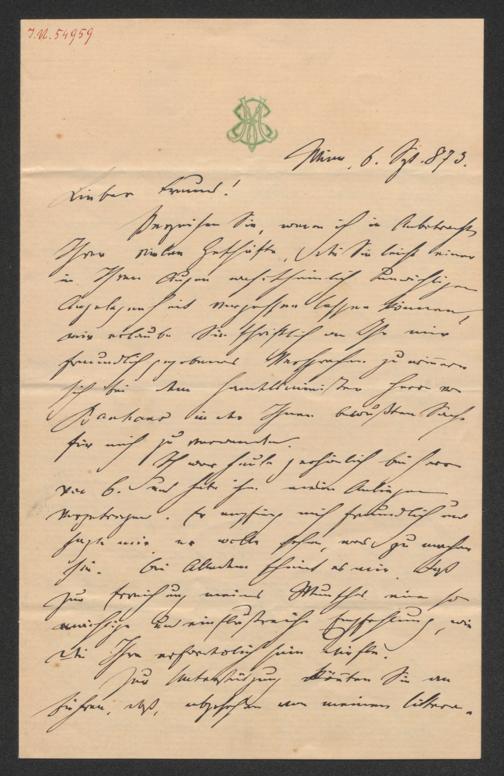 J.N. 54959
Wien, 6. Spt. 873.
Lieber Freund!
Verzeihen Sie, wenn ich in Anbetracht
Ihrer vielen Geschäfte, die Sie leicht einer
in Ihren Augen
Angelegenheit vergessen lassen können,
mir erlaube Sie schriftlich an Ihr mir
freundlich gegebenes Versprechen zu erinnern
sich bei dem Handelsminister Herrn von
Banhans in der Ihnen bewußten Sache
für mich zu verwenden.
Ich war heute persönlich bei Herrn
von B. und habe ihm mein Anliegen
vorgetragen. Er empfing mich freundlich und
sagte mir er wolle sehen, was zu machen
sei. Bei Alledem scheint es mir, daß
zur Erreichung meines Wunsches eine so
mächtige und einflußreiche Empfehlung, wie
die Ihre erforderlich sein dürfte.
Zur Unterstützung könnten Sie an
führen, daß, abgesehen von meinen litera-